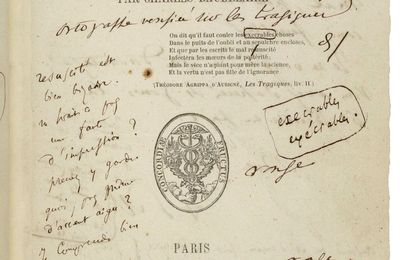 PAR CHARLES BAUDELAIRE
ortographe vérifiée sur les tragiques
On dit qu'il faut couler les execrables choses
Dans le puits de l'oubli et au sepulchre encloses,
Et que par les escrits le mal resuscité
Infectera les mœurs de la postérité;
Mais le vice n'a point pour mère la science,
Et la vertu n'est pas fille de l'ignorance.
(THÉODORE AGRIPPA D'AUBIGNÉ, Les Tragiques, liv. II.)
resuscité est
bien bizarre.
une faute
d'impression?
prenez y garde
quoi, pas même
d'accent aigu?
execrables
exécrables.
CONCORDIÆ FRUCTUS
PARIS